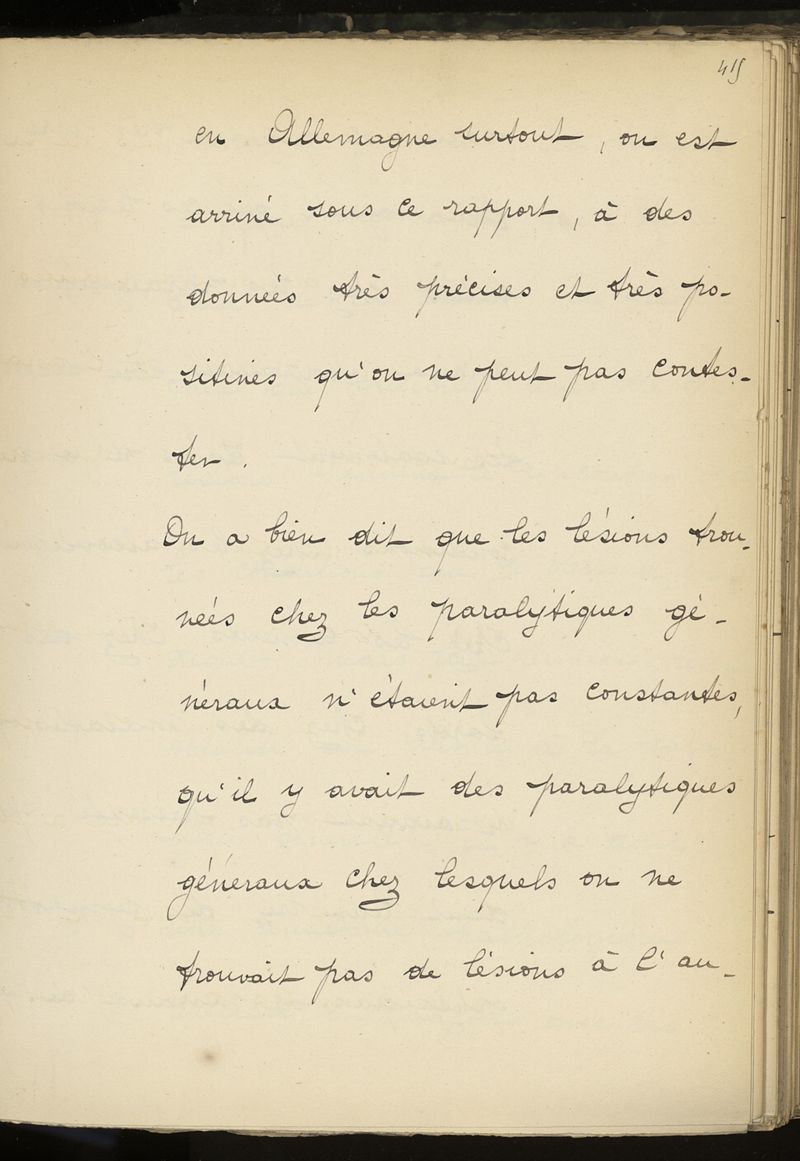 415
en Allemagne surtout, on est
arrivé sous ce rapport, à des
données très précises et très po-
sitives qu'on ne peut pas contes-
ter.
On a bien dit que les lésions trou-
vées chez les paralytiques gé-
néraux n'étaient pas constantes,
qu'il y avait des paralytiques
généraux chez lesquels on ne
trouvait pas de lésions à l'au-